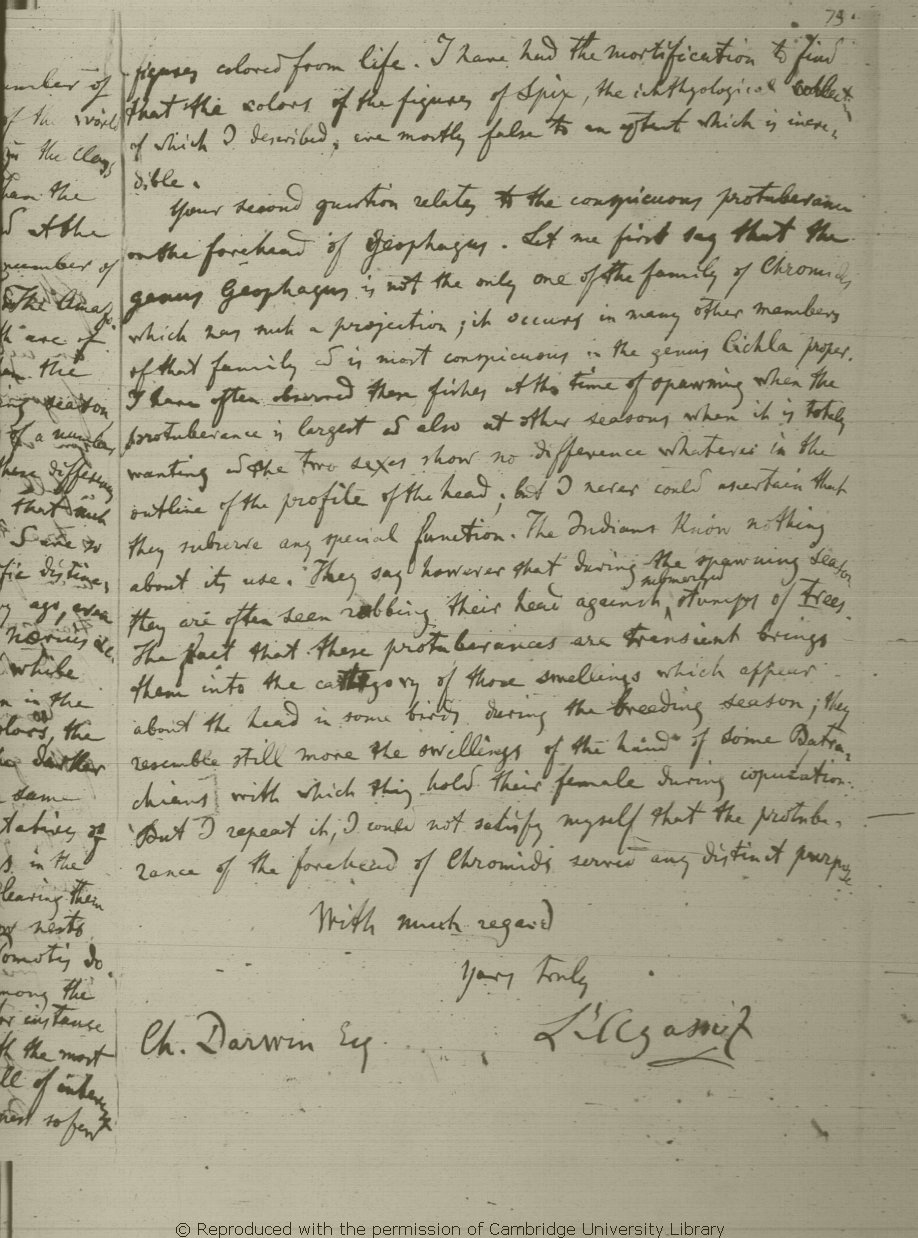 73.
umber of
of the world
in the class
than the
d at the
number of
in the Amaz.
th are of
the
ing season
of a number
these differing
that such
S are so
fic distinc,
ago, even
Nornies &c.
while
n in the
olors, the
darker
same
tatives of
s in the
learing them
nests
omotis do.
mong the
for instance
th the most
ll of interest
so few
figures colored from life. I have had the mortification to find
that the colors of the figures of Spix, the ichthyological collect.
of which I described, are mostly false to an extent which is incre,
dible.
Your second question relates to the conspicuous protuberance
on the forehead of Geophagus. Let me first say that the
genus Geophagus is not the only one of the family of Chromids
which has such a projection; it occurs in many other members
of that family & is most conspicuous in the genus Cichla proper.
I have often observed these fishes at the time of spawning when the
protuberance is largest & also at other seasons when it is totally
wanting & the two sexes show no difference whatever in the
outline of the profile of the head; but I never could ascertain that
they subserve any special function. The Indians know nothing
about its use. They say however that during the spawning season
they are often seen rubbing their head against submerged stumps of trees
The fact that these protuberances are transient brings
them into the category of those swellings which appear
about the head in some birds during the breeding season; they
resemble still more the swellings of the hand of some Batra,
chians with which they hold their female during copulation.
But I repeat it, I could not satisfy myself that the protube,
rance of the forehead of Chromids serves any distinct purpose
With much regard
Yours truly
Ls Agassiz
Ch. Darwin Esq
© Reproduced with the permission of Cambridge University Library